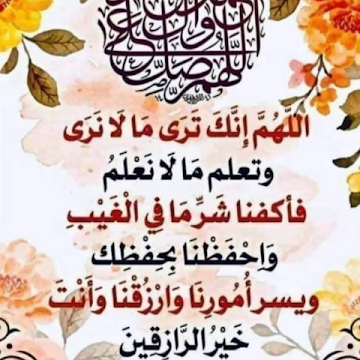 اللَّهُمَّ إِنَّكَ تَرَى مَا لَا نَرَى
وتعلم مَا لَا نَعْلَمُ
فأكفنا شَرِّ مَا فِي الْغَيْبِ
وَاحْفَظْنَا بِحِفْظِكَ
ويسر أُمُورِنَا وَارْزُقْنَا وَأَنْتَ
خَيْرُ الرَّازِقِينَ